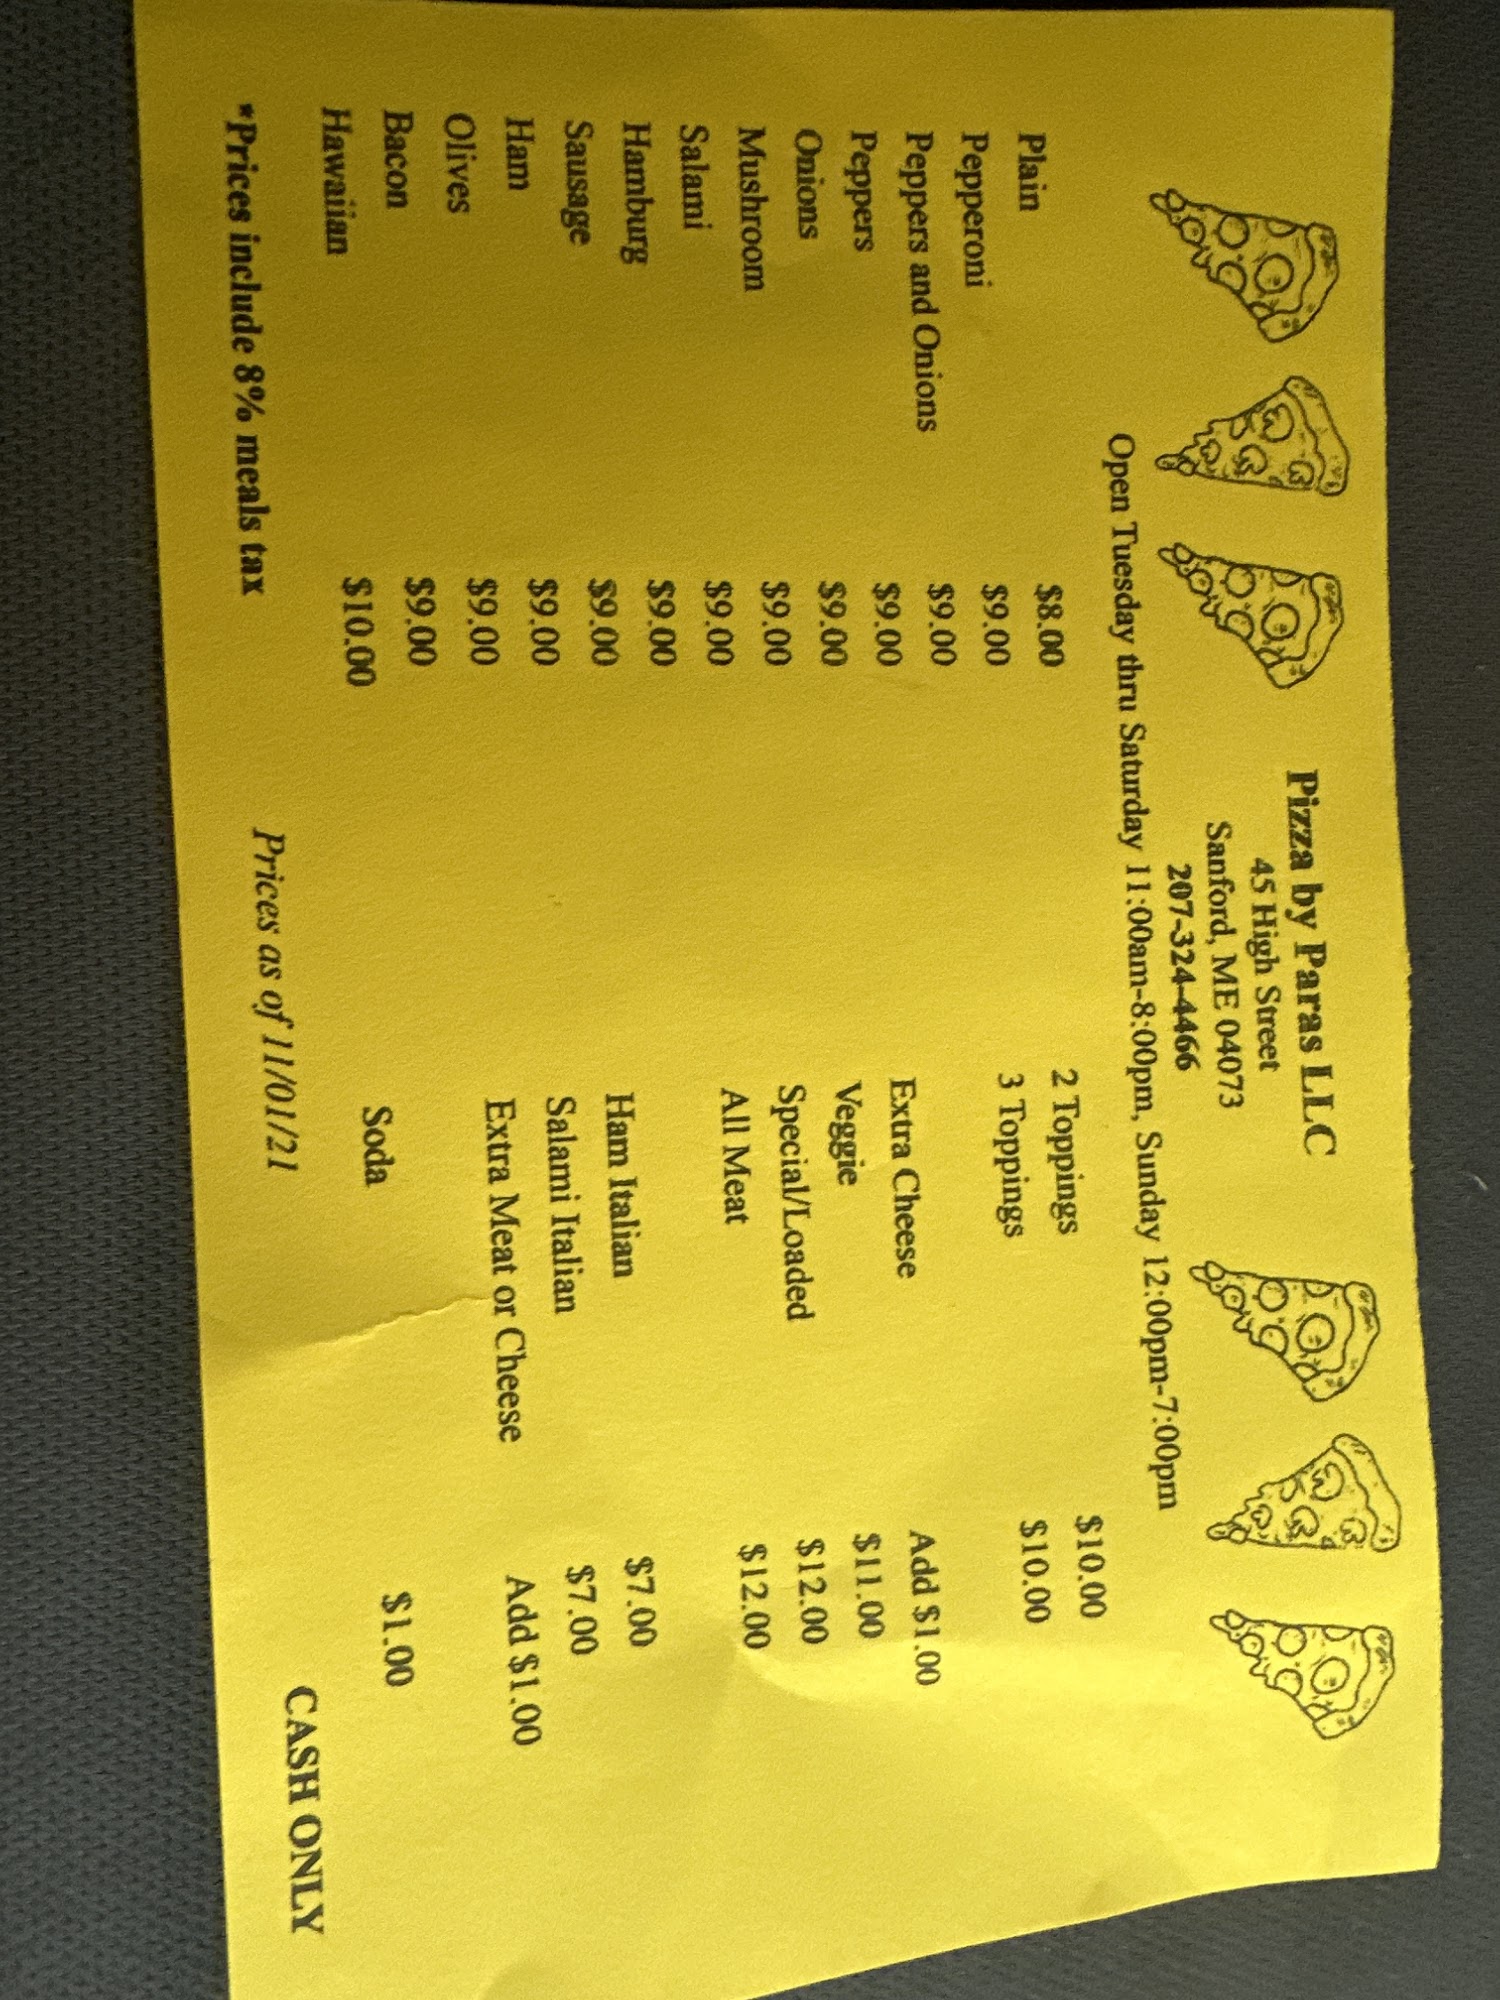 Pizza by Paras LLC
45 High Street
Sanford, ME 04073
207-324-4466
Open Tuesday thru Saturday 11:00am-8:00pm, Sunday 12:00pm-7:00pm
Plain $8.00
Pepperoni $9.00
Peppers and Onions $9.00
Peppers $9.00
Onions $9.00
Mushroom $9.00
Salami $9.00
Hamburg $9.00
Sausage $9.00
Ham $9.00
Olives $9.00
Bacon $9.00
Hawaiian $10.00
2 Toppings $10.00
3 Toppings $10.00
Extra Cheese Add $1.00
Veggie $11.00
Special/Loaded $12.00
All Meat $12.00
Ham Italian $7.00
Salami Italian $7.00
Extra Meat or Cheese Add $1.00
Soda $1.00
*Prices include 8% meals tax Prices as of 11/01/21 CASH ONLY